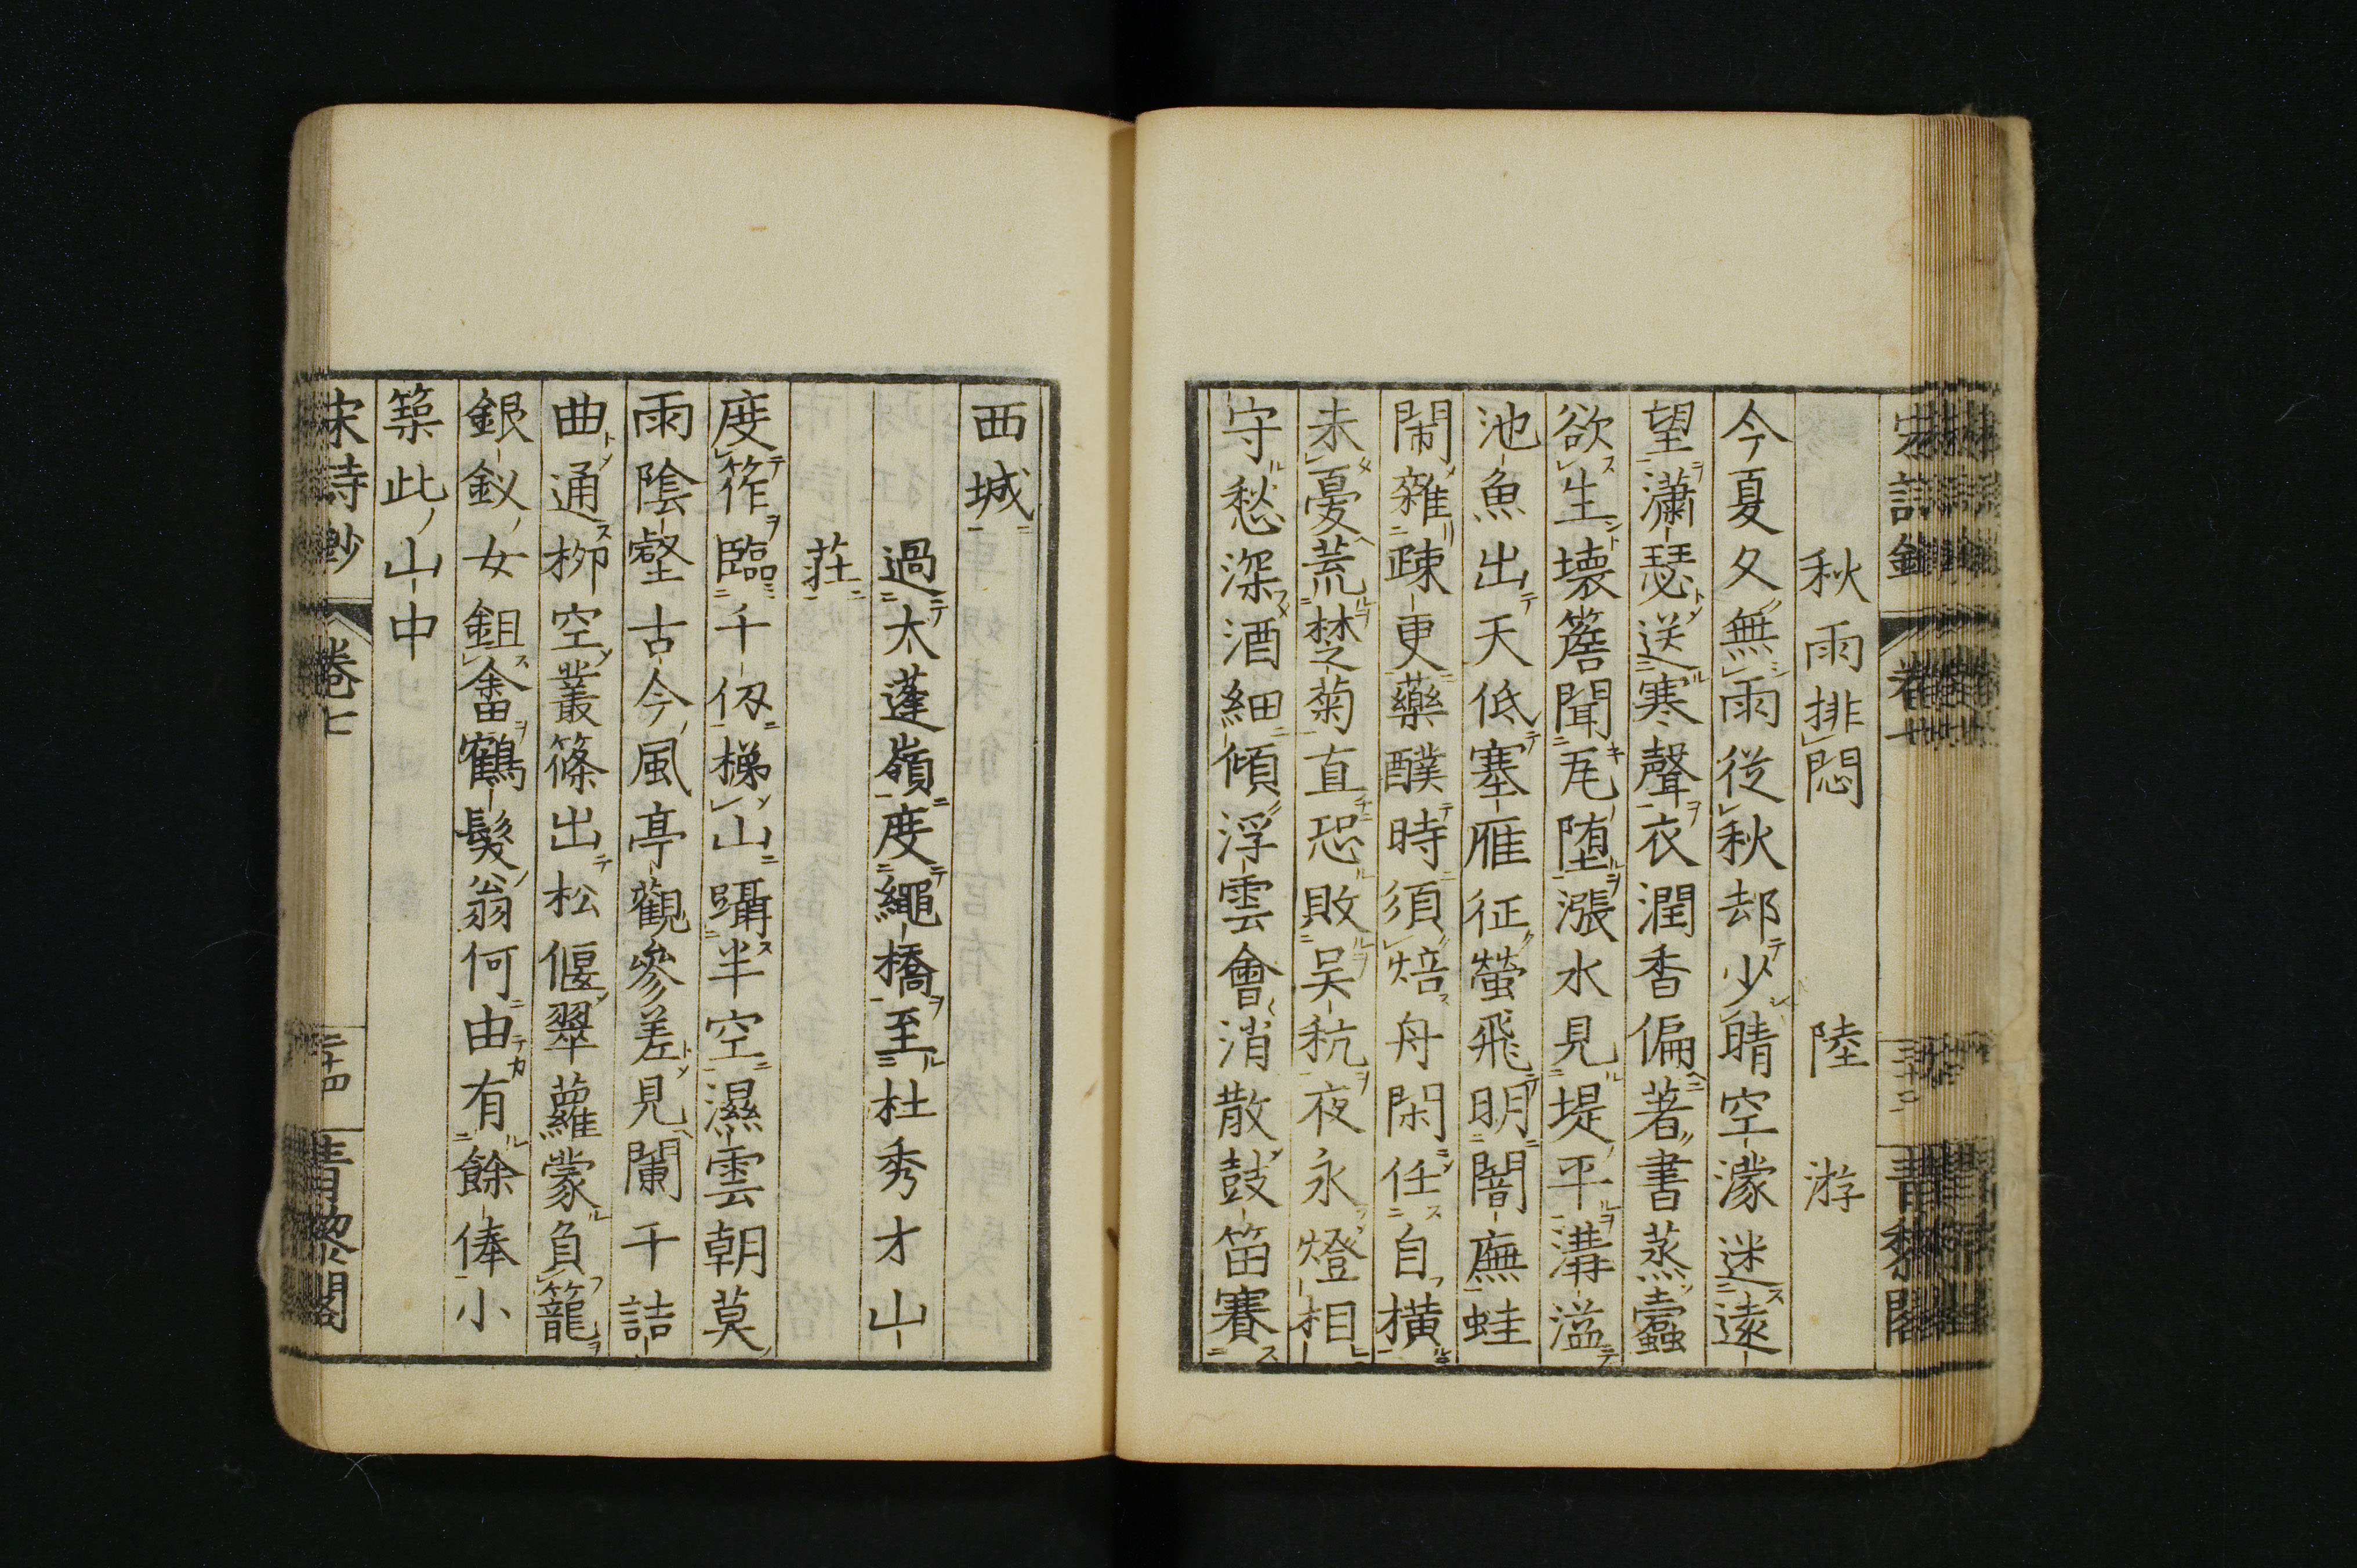 秋雨排悶　陸游
今夏久無雨從秋却少晴空濛迷遠
望瀟瑟送寒聲衣潤香偏著書蒸蠹
欲生壊簷聞瓦堕漲水見堤平溝溢
池魚出天低塞雁征螢飛明闇廡蛙
閙雜疎更藥醭時須焙舟閑任自横
未憂荒楚菊直恐敗吴秔夜永燈相
守愁深酒細傾浮雲會消散鼓笛賽
西城
過大蓬嶺度繩橋至杜秀才山
莊
度筰臨千仭梯山躡半空濕雲朝莫
雨陰壑古今風亭觀參差見闌干詰
曲通栁空叢篠出松偃翠蘿蒙負籠
銀釵女鉏畬鶴髮翁何由有餘俸小
築此山中
宋詩鈔　卷七　三十四　青黎閣